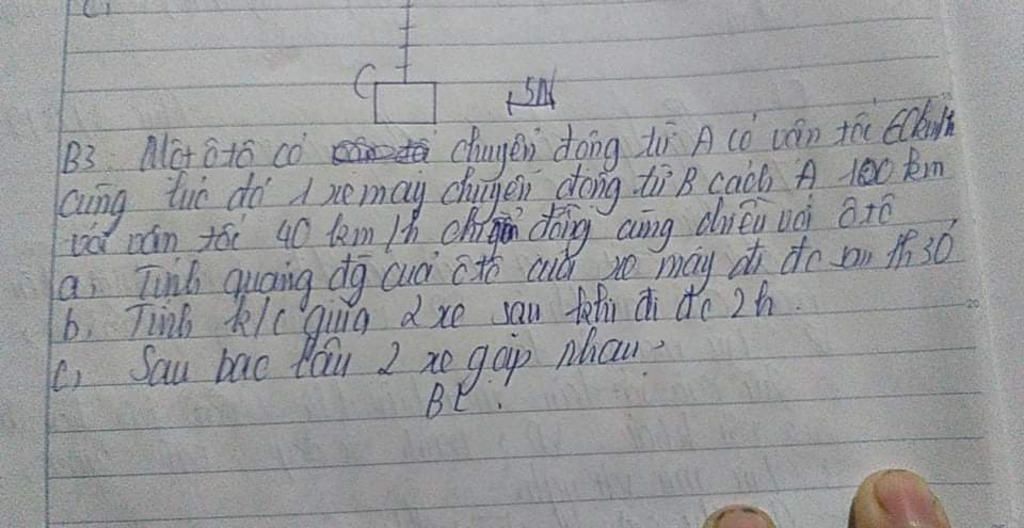 C
5N
B3: Một ôtô có chuyển động từ A có vận tốc 60km/h
cùng lúc đó 1 xe máy chuyển động từ B cách A 100 km
với vận tốc 40 km/h chuyển động cùng chiều với ôtô
a, Tính quãng đg của ôtô của xe máy đi đc sau 1h30'
b, Tính k/c giữa 2 xe sau khi đi đc 2h.
c, Sau bao lâu 2 xe gặp nhau.
BL.